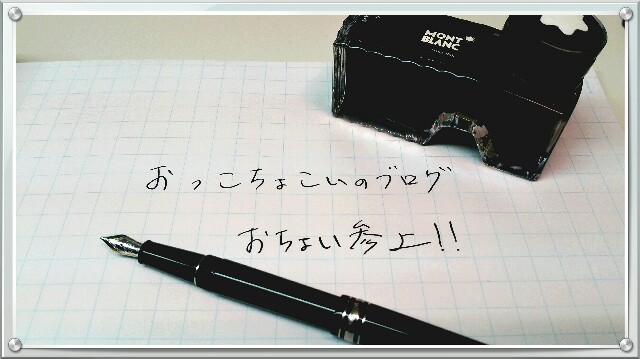 MONT
BLANC
おっこちょこいのブログ
おちょい参上!!